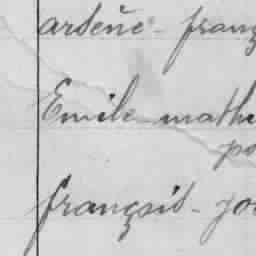 arsène - franç
Emile mathi
po
françois - jos